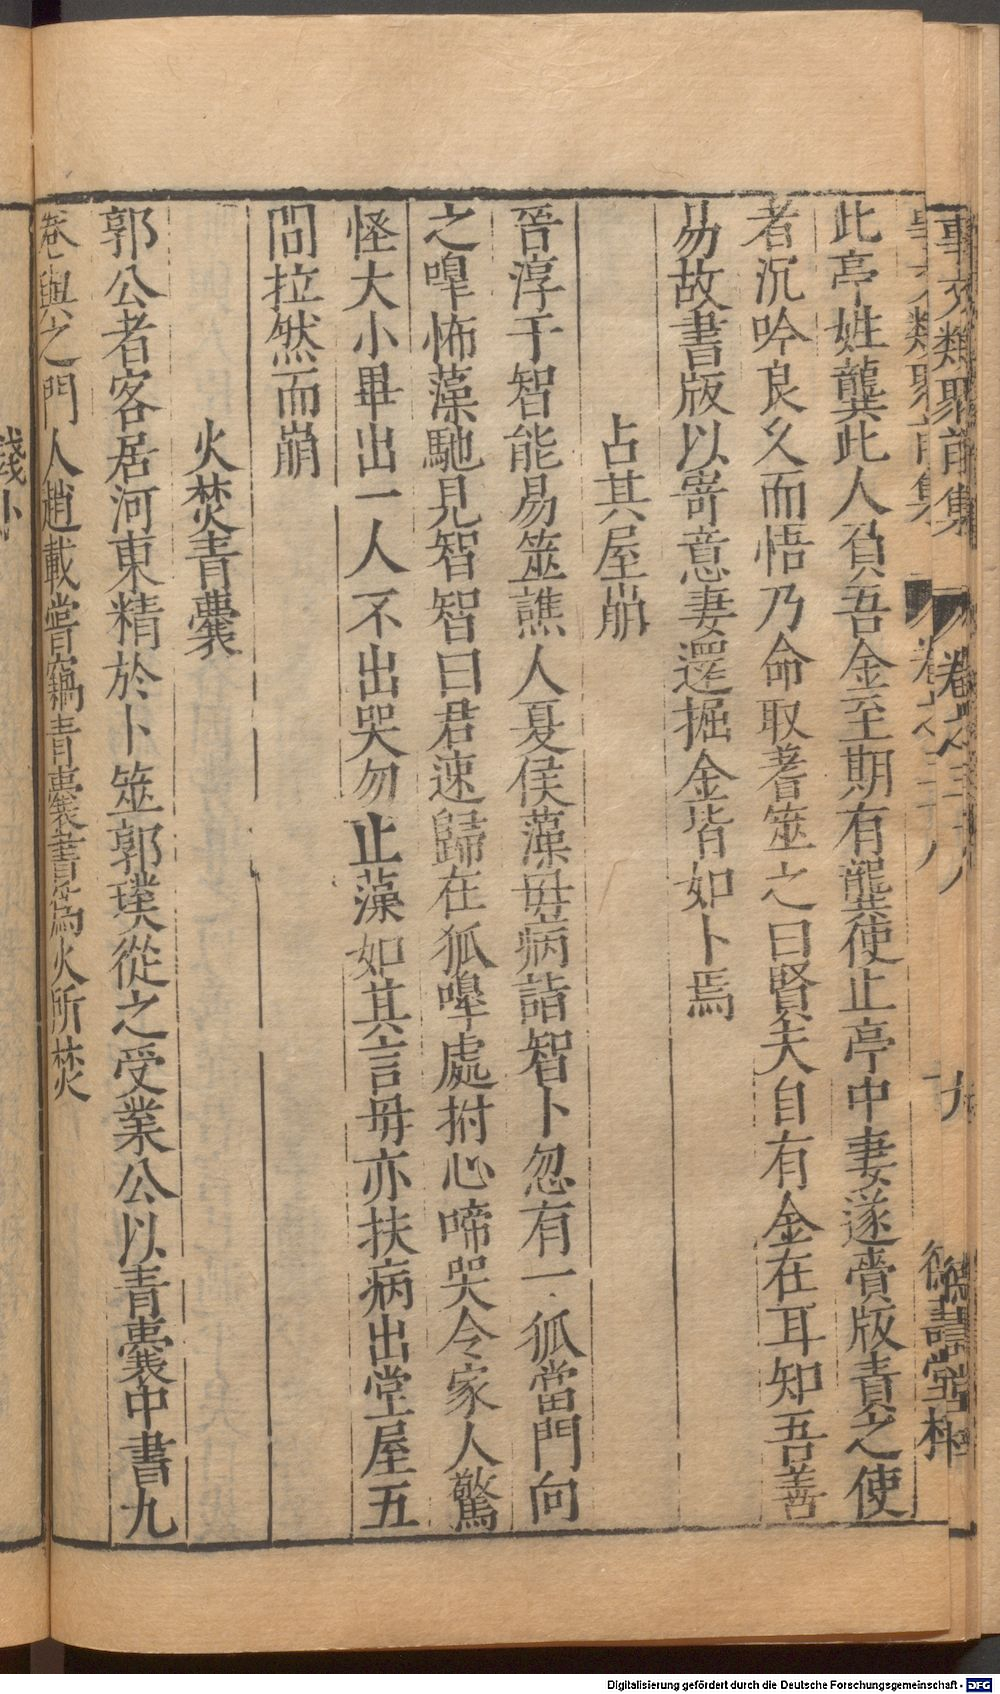 事文類聚前集 卷之三十八 九 德壽堂梓
此亭姓龔此人負吾金至期有龔使止亭中妻遂賫版責之使
者沉吟良久而悟乃命取蓍筮之曰賢夫自有金在耳知吾善
易故書版以寄意妻還掘金皆如卜焉
占其屋崩
晉淳于智能易筮譙人夏侯藻母病詣智卜忽有一狐當門向
之嘷怖藻馳見智智曰君速歸在狐嘷處拊心啼哭令家人驚
怪大小畢出一人不出哭勿止藻如其言毋亦扶病出堂屋五
間拉然而崩
火焚青囊
郭公者客居河東精於卜筮郭璞從之受業公以青囊中書九
卷與之門人趙載嘗竊青囊書爲火所焚
錢卜
Digitalisierung gefördert durch die Deutsche Forschungsgemeinschaft - DFG